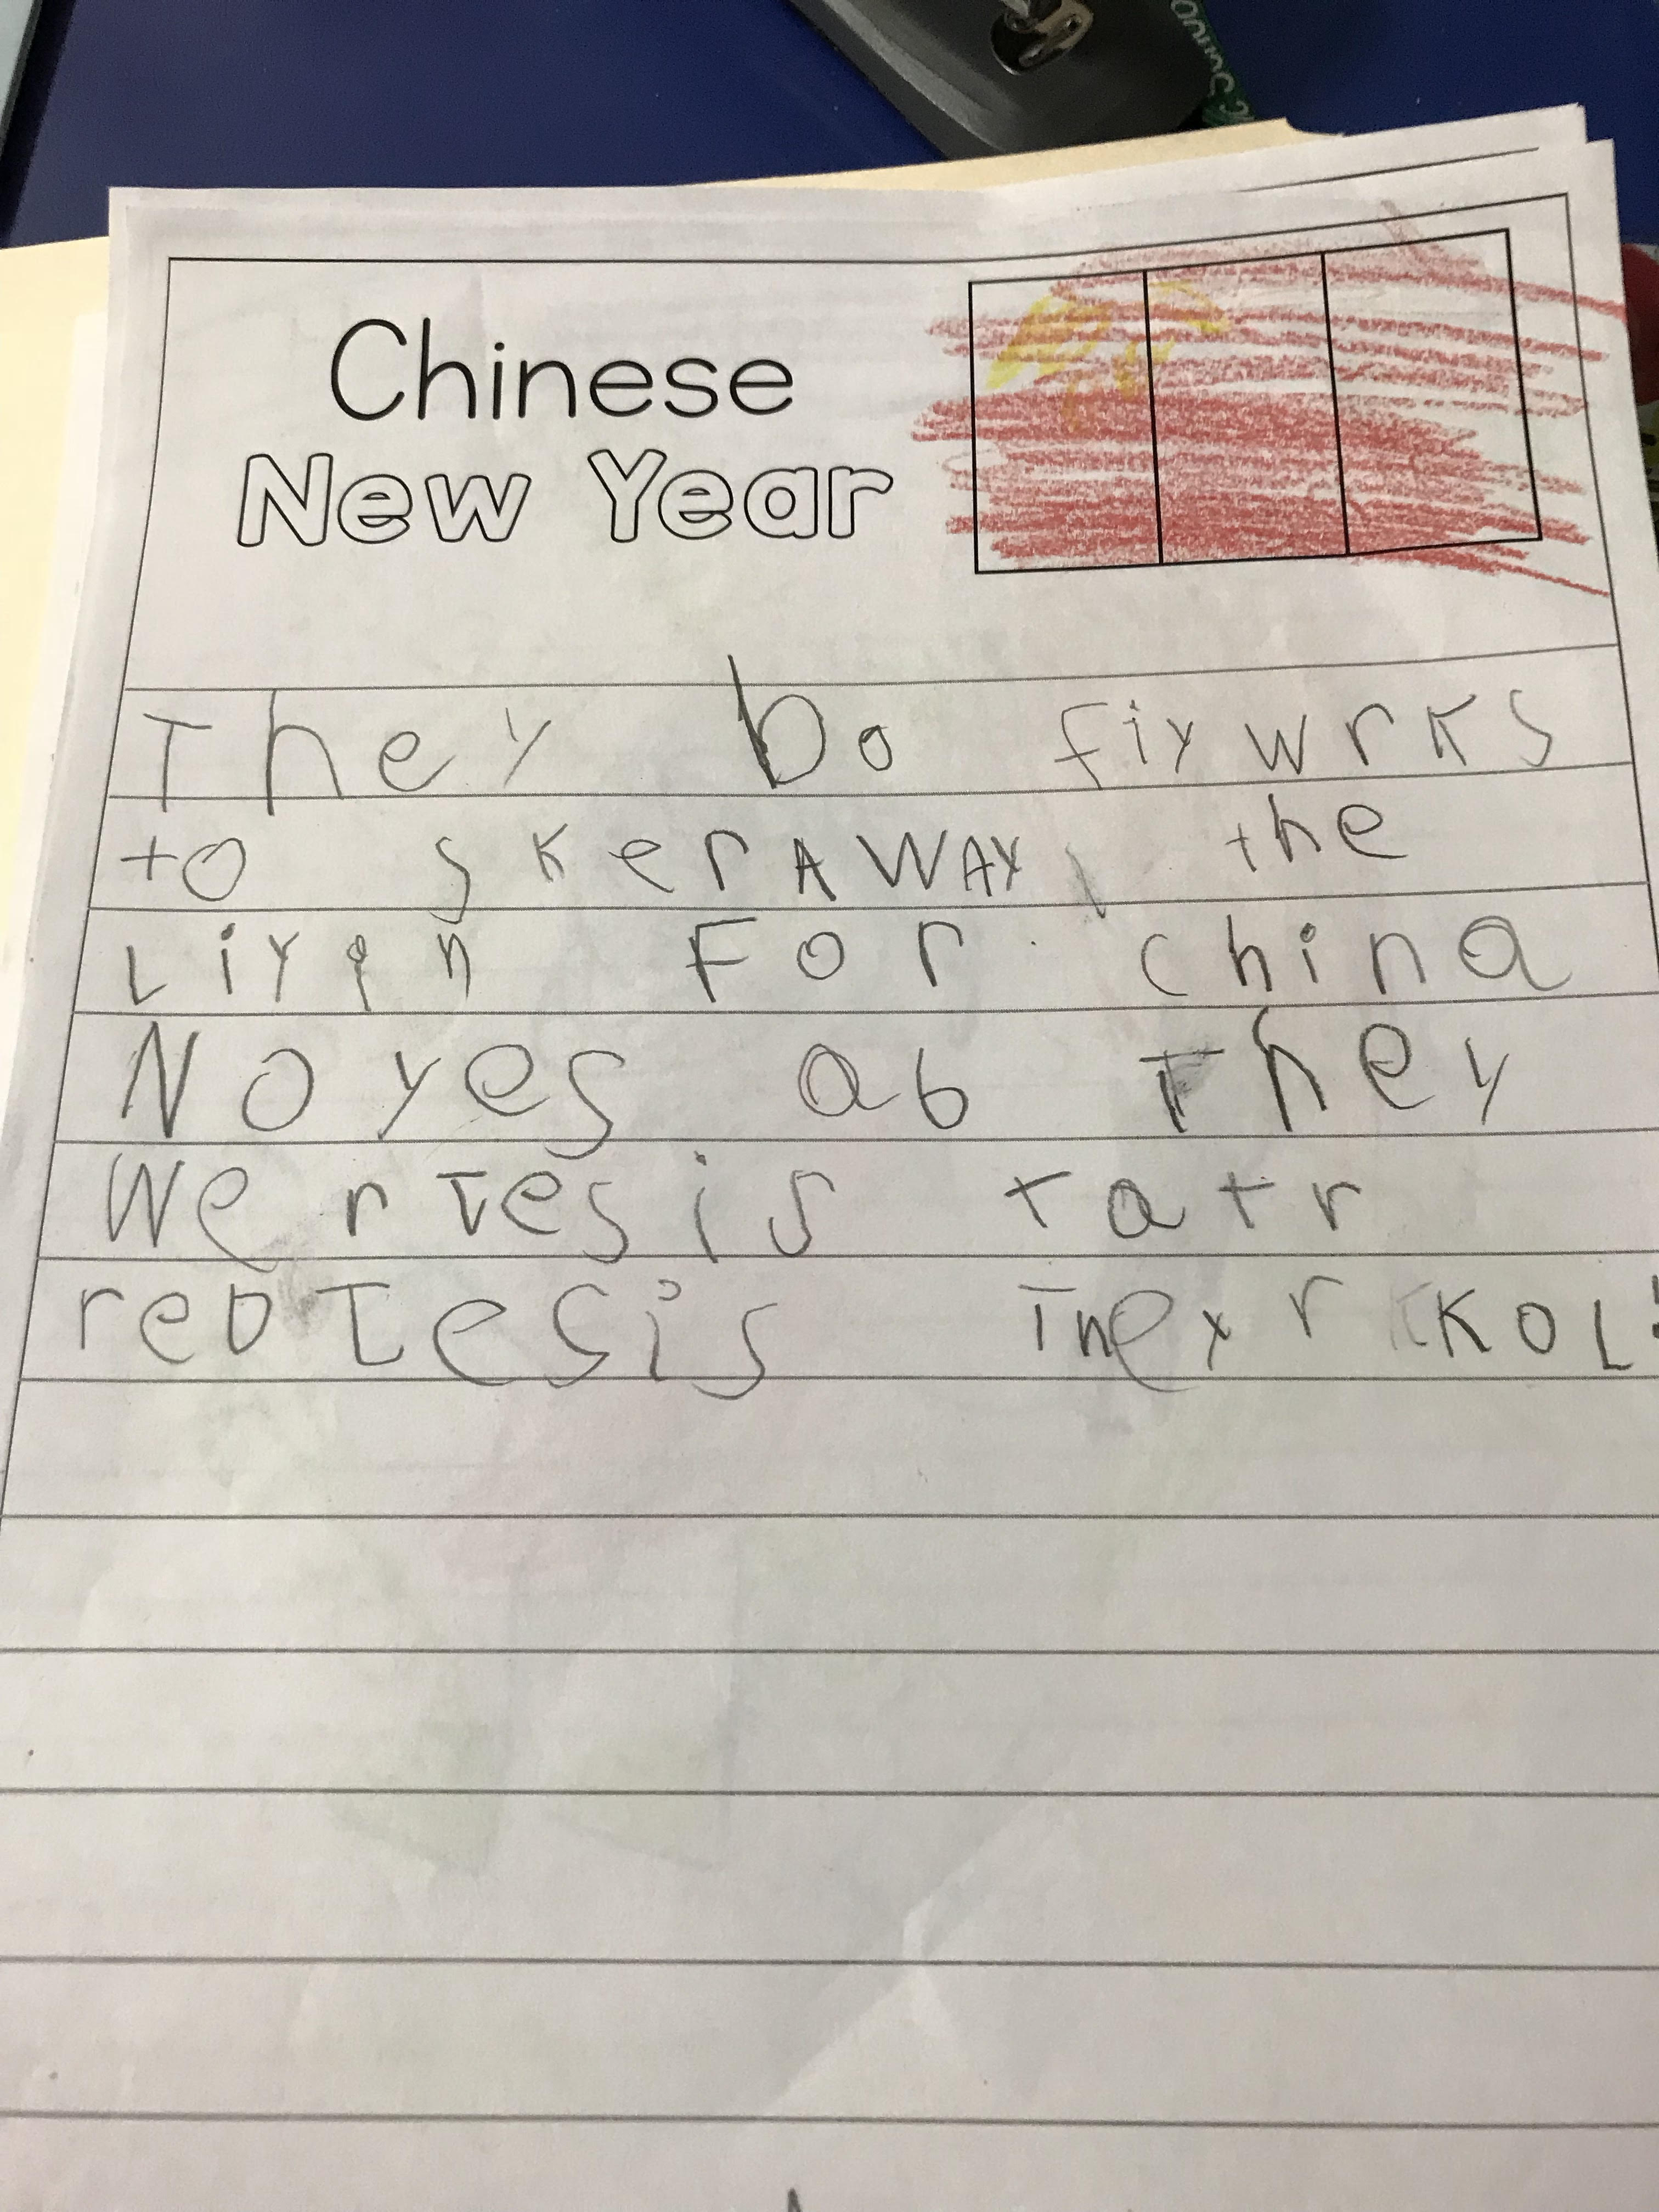 Chinese
New Year
They Do fiywrks
to skerAWAY the
Liyin For china
Noyes ab They
Wer Tesis tatr
reD Tesis Theyr KOL!